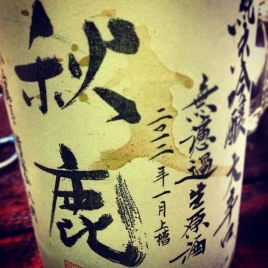 純米吟醸 大辛口
無濾過生原酒
二〇一二年一月上槽
秋鹿